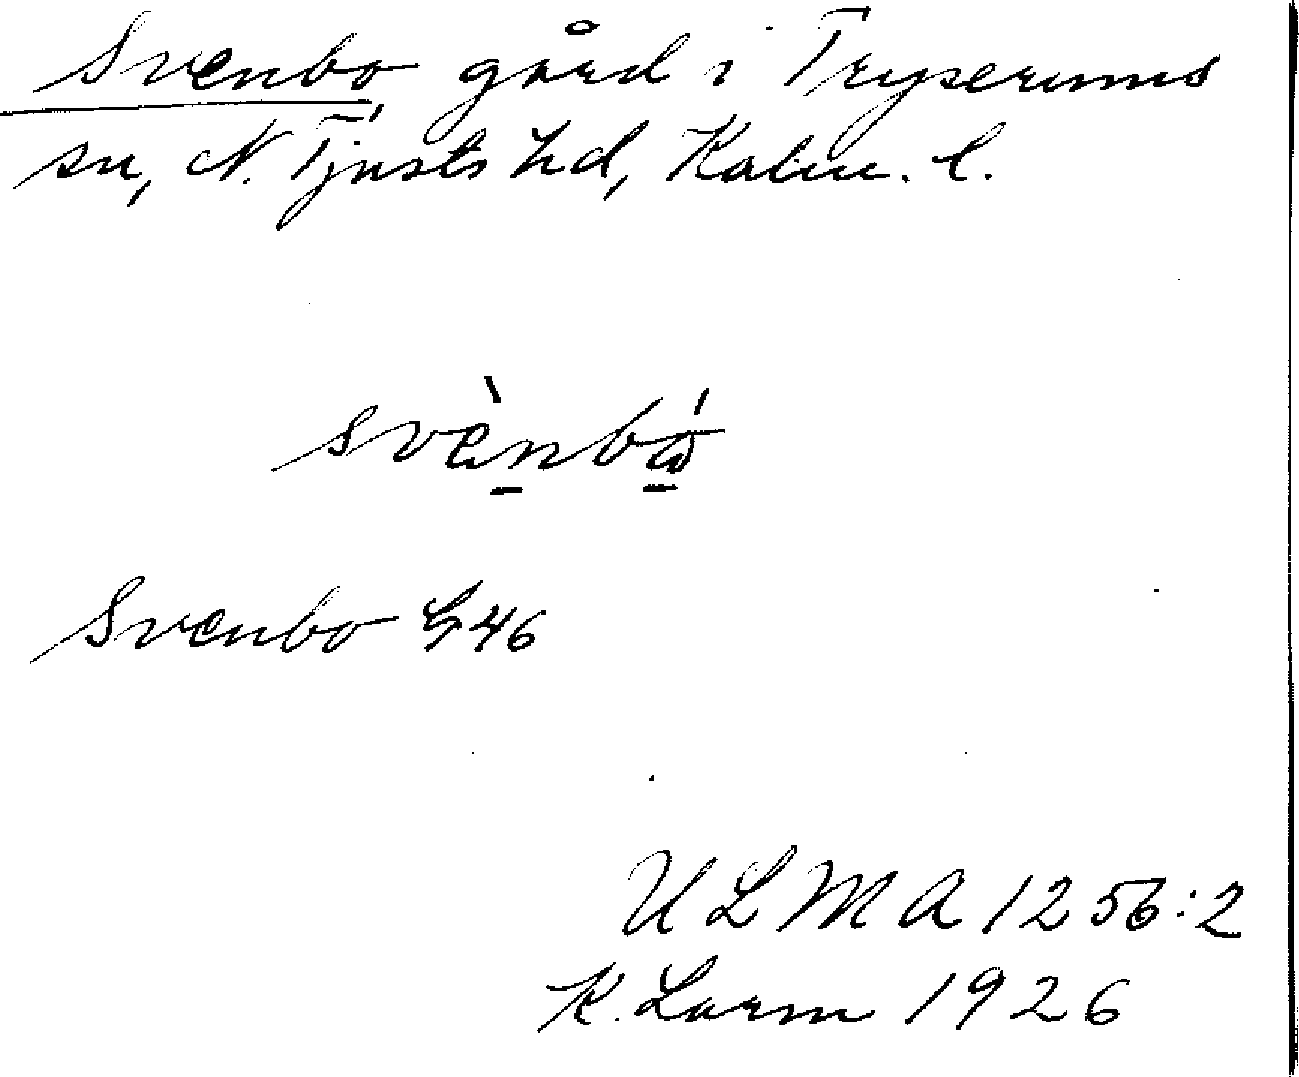 Svenbo gård i Tryserums
sn, N. Tjusts hd, Kalm. l.
svènbó
Svenbo G46
ULMA 1256:2
K. Larm 1926